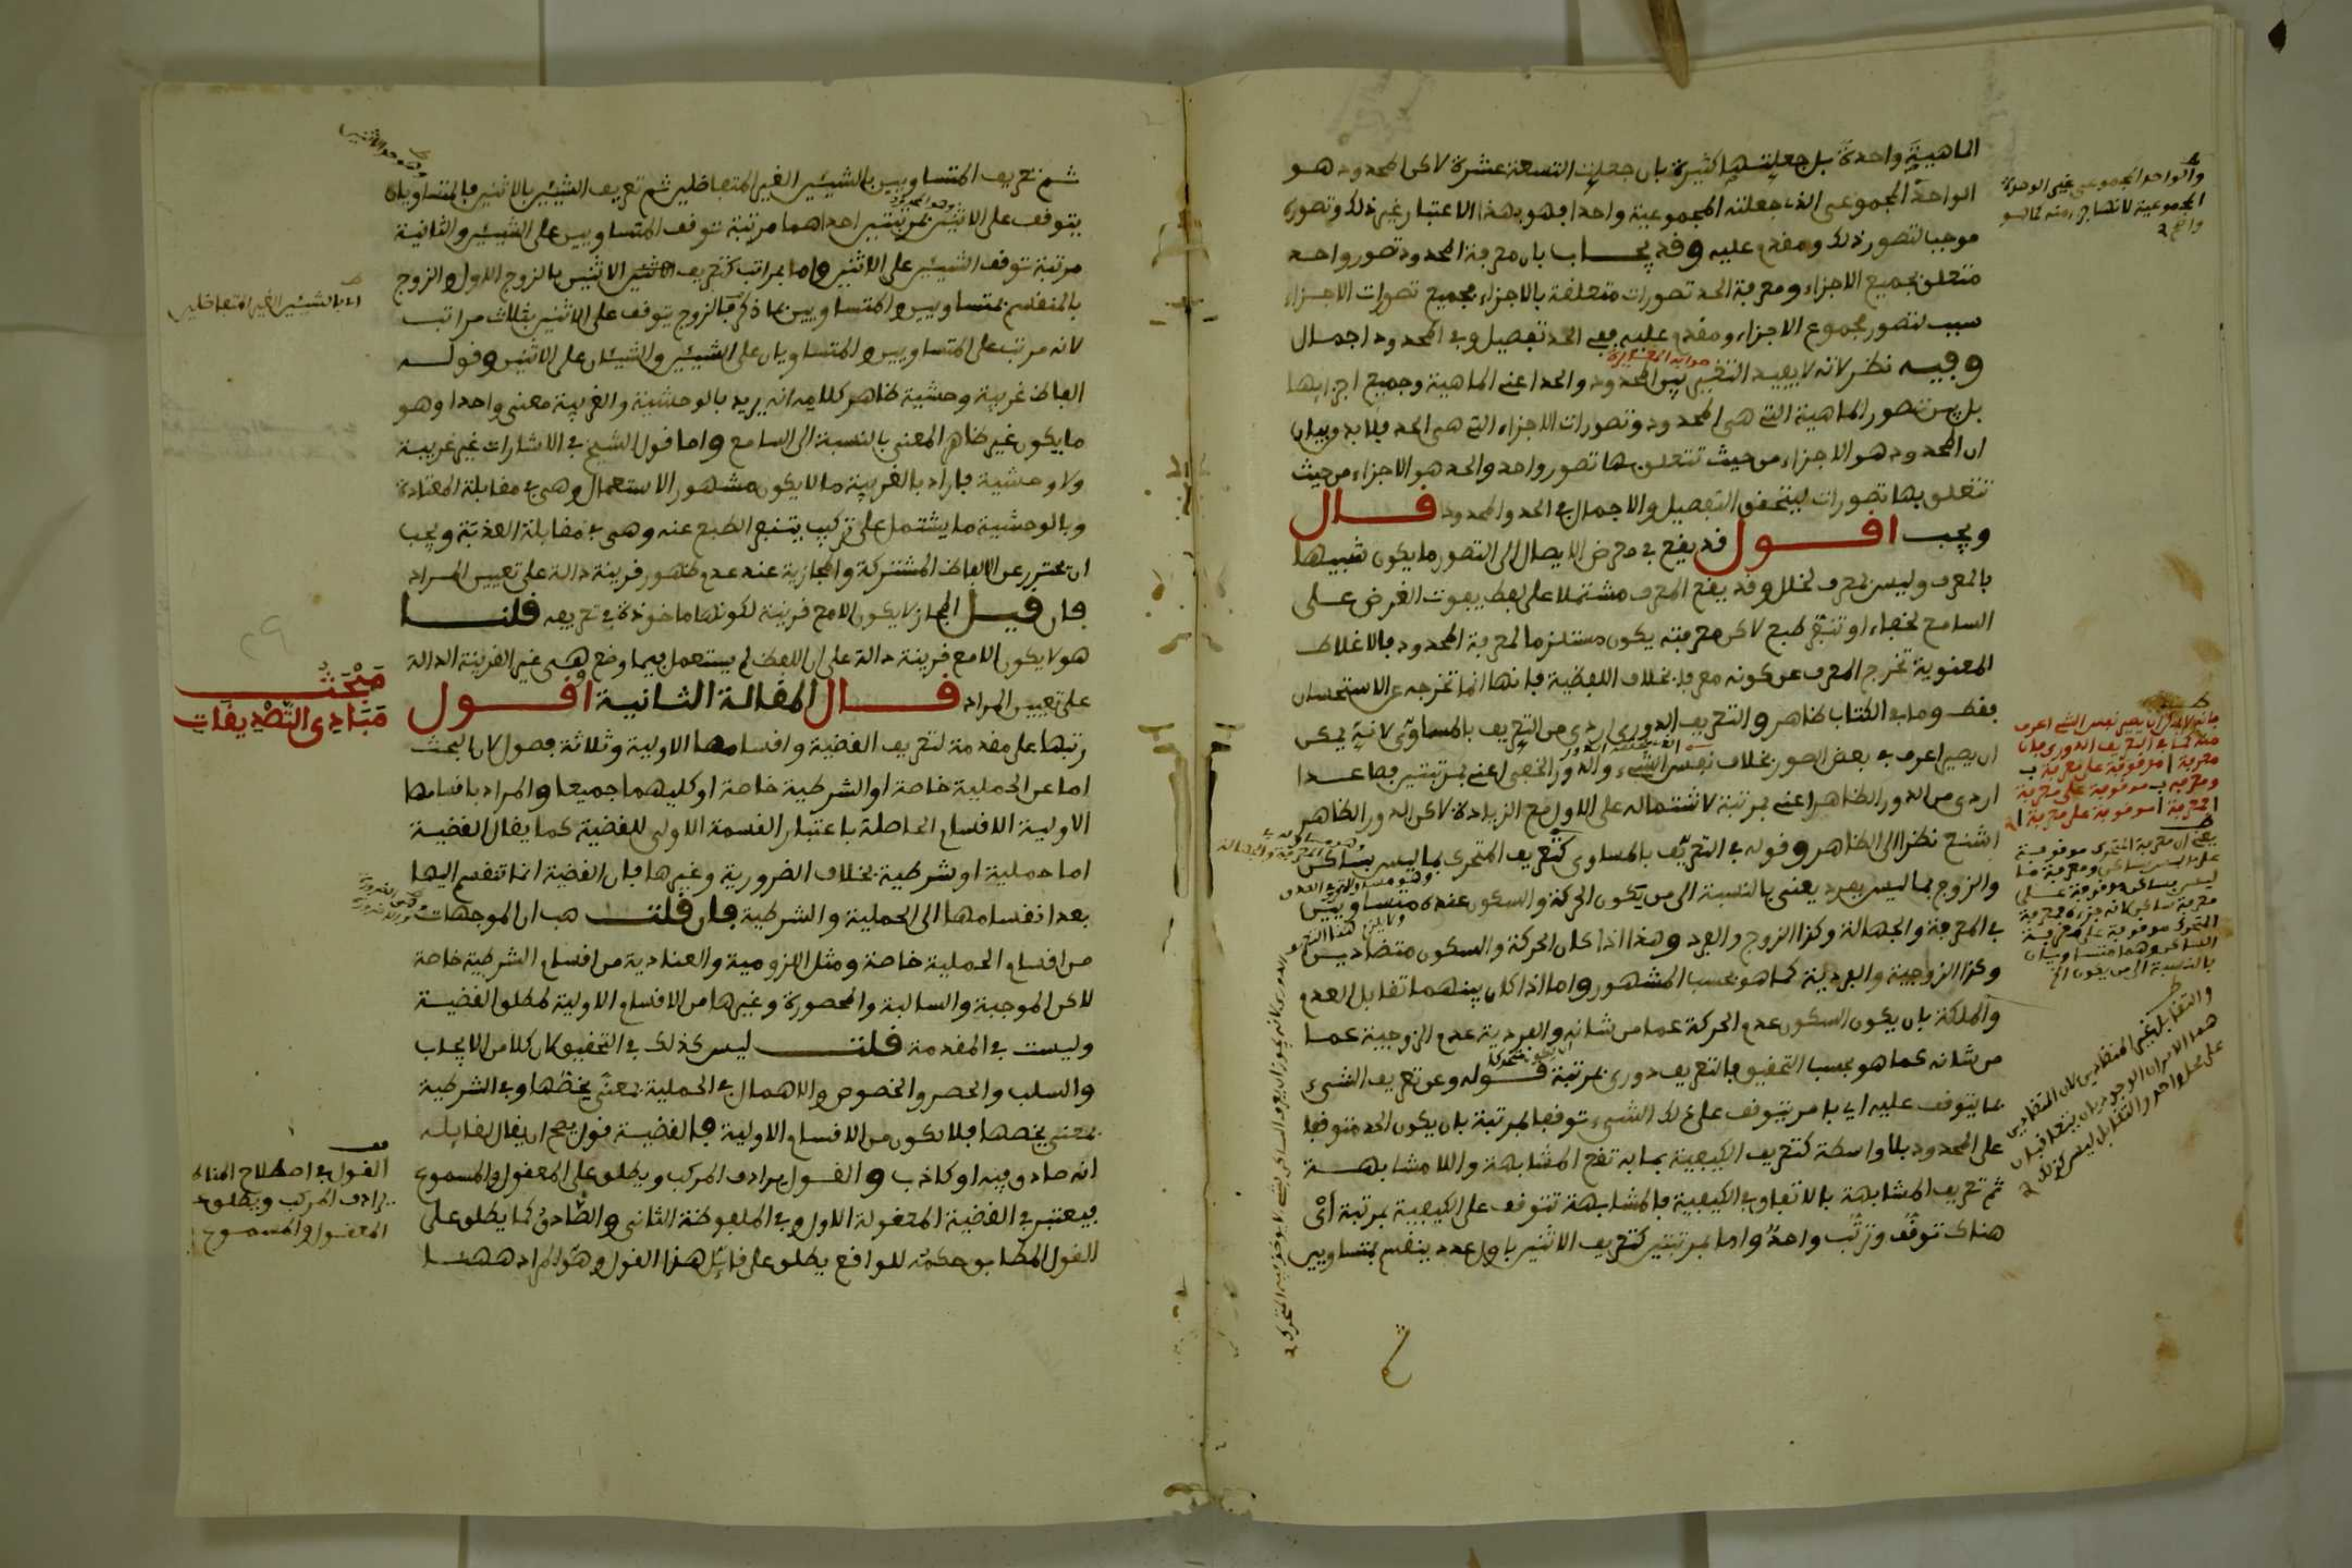 الماهية واحدة بل جعلتها كثيرة بان جعلت التسعة عشرة لاكن المحدود هو
الواحد المجموعى الذى جعلته المجموعية واحدا فهو بهذا الاعتبار غير ذلك وتصوره
موجب لتصور ذلك ومقدم عليه وقد يجاب بان معرفة المحدود تصور واحد
متعلق بجميع الاجزاء ومعرفة الحد تصورات متعلقة بالاجزاء فجميع تصورات الاجزاء
سبب لتصور مجموع الاجزاء ومقدم عليه ففى الحد تفصيل وفى المحدود اجمال
وفيه نظر لانه لا يفيد التغير بين المحدود والحد اعنى الماهية وجميع اجزايها
بل بين تصور الماهية التى هى المحدود وتصورات الاجزاء التى هى الحد فلا بد وبيان
ان المحدود هو الاجزاء من حيث تتعلق بها تصور واحد والحد هو الاجزاء من حيث
تتعلق بها تصورات ليتحقق التفصيل والاجمال فى الحد والمحدود قال
ويجب اقول قد يقع فى معرض الايصال الى التصور ما يكون شبيها
بالمعرف وليس بمعرف لخلل وقد يقع المعرف مشتملا على لفظ يفوت الغرض على
السامع لخفاء او تنفر طبع لاكن معرفته يكون مستلزما لمعرفة المحدود فالاغلاط
المعنوية تخرج المعرف عن كونه معرفا بخلاف اللفظية فانها انما تخرجه عن الاستحسان
فقط وما فى الكتاب ظاهر والتعريف الدورى اردى من التعريف بالمساوى لانه يمكن
ان يصير اعرف فى بعض الصور بخلاف نفس الشىء والدور الخفى اعنى بمرتبتين فصاعدا
اردى من الدور الظاهر اعنى بمرتبة لاشتماله على الاول مع الزيادة لاكن الدور الظاهر
اشنع نظرا الى الظاهر وقوله فى التعريف بالمساوى كتعريف المتحرك بما ليس بساكن
والزوج بما ليس بفرد يعنى بالنسبة الى من يكون الحركة والسكون عنده متساويين
فى المعرفة والجهالة وكذا الزوج والفرد وهذا اذا كان الحركة والسكون متضادين
وكذا الزوجية والفردية كما هو بحسب المشهور واما اذا كان بينهما تقابل العدم
والملكة بان يكون السكون عدم الحركة عما من شانه والفردية عدم الزوجية عما
من شانه كما هو بحسب التحقيق فالتعريف دورى بمرتبة قوله وعن تعريف الشىء
بما يتوقف عليه اى بامر يتوقف على ذلك الشىء توقفا بمرتبة بان يكون الحد متوقفا
على المحدود بلا واسطة كتعريف الكيفية بما به تقع المشابهة واللا مشابهة
ثم تعريف المشابهة بالاتفاق فى الكيفية فالمشابهة تتوقف على الكيفية بمرتبة اى
هناك توقف وترتب واحد واما بمرتبتين كتعريف الاثنين باول عدد ينقسم بمتساويين
والواحد المجموعى غير الوحدة
المجموعية
فانه لا يمكن ان يصير نفس الشىء اعرف
منه كما فى التعريف الدورى فان
معرفة ا موقوفة على معرفة ب
ومعرفة ب موقوفة على معرفة
ا فمعرفة ا موقوفة على معرفة ا
يعنى ان معرفة المتحرك موقوفة
على ما ليس بساكن ومعرفة ما
ليس بساكن موقوفة على
معرفة ساكن لانه جزءه فمعرفة
المتحرك موقوفة على معرفة
الساكن وهما متساويان
بالنسبة الى من يكون الخ
والتقابل غير المتضادين لان المتضادين
هما الامران الوجوديان يتعاقبان
على محل واحد والتقابل ليس كذلك
ثم تعريف المتساويين بالشيئين الغير المتفاضلين ثم تعريف الشيئين بالاثنين فالمتساويان
يتوقف على الاثنين بمرتبتين احداهما مرتبة توقف المتساويين على الشيئين والثانية
مرتبة توقف الشيئين على الاثنين واما بمراتب كتعريف الاثنين بالزوج الاول والزوج
بالمنقسم بمتساويين والمتساويين بما ذكر فالزوج يتوقف على الاثنين بثلاث مراتب
لانه مرتب على المتساويين والمتساويان على الشيئين والشيئان على الاثنين وقوله
الفاظ غريبة وحشية ظاهر كلامه انه يريد بالوحشية والغريبة معنى واحدا وهو
ما يكون غير ظاهر المعنى بالنسبة الى السامع واما قول الشيخ فى الاشارات غير غريبة
ولا وحشية فاراد بالغريبة ما لا يكون مشهور الاستعمال وهى فى مقابلة المعتادة
وبالوحشية ما يشتمل على تركيب يتنفر الطبع عنه وهى فى مقابلة العذبة ويجب
ان يحترز عن الالفاظ المشتركة والمجازية عند عدم ظهور قرينة دالة على تعيين المراد
فان قيل المجاز لا يكون الا مع قرينة لكونها ماخوذة فى تعريفه قلنا
هو لا يكون الا مع قرينة دالة على ان اللفظ لم يستعمل فيما وضع وهى غير القرينة الدالة
على تعيين المراد قال المقالة الثانية اقول
رتبها على مقدمة لتعريف القضية واقسامها الاولية وثلاثة فصول لان البحث
اما عن الحملية خاصة او الشرطية خاصة او كليهما جميعا والمراد باقسامها
الاولية الاقسام الحاصلة باعتبار القسمة الاولى للقضية كما يقال القضية
اما حملية او شرطية بخلاف الضرورية وغيرها فان القضية انما تنقسم اليها
بعد انقسامها الى الحملية والشرطية فان قلت هب ان الموجهات
من اقسام الحملية خاصة ومثل اللزومية والعنادية من اقسام الشرطية خاصة
لاكن الموجبة والسالبة والمحصورة وغيرها من الاقسام الاولية لمطلق القضية
وليست فى المقدمة قلت ليس كذلك فى التحقيق لان كلا من الايجاب
والسلب والحصر والخصوص والاهمال فى الحملية بمعنى يخصها وفى الشرطية
بمعنى يخصها فلا تكون من الاقسام الاولية فالقضية قول يصح ان يقال لقايله
انه صادق فيه او كاذب والقول يرادف المركب ويطلق على المعقول والمسموع
فيعتبر فى القضية المعقولة الاول وفى الملفوظة الثانى والصادق كما يطلق على
القول المطابق حكمه للواقع يطلق على قايل هذا القول وهو المراد ههنا
اى بالشيئين الغير المتفاضلين
مبحث
مبادى التصديقات
القول فى اصطلاح
يرادف المركب ويطلق
المعقول والمسموع